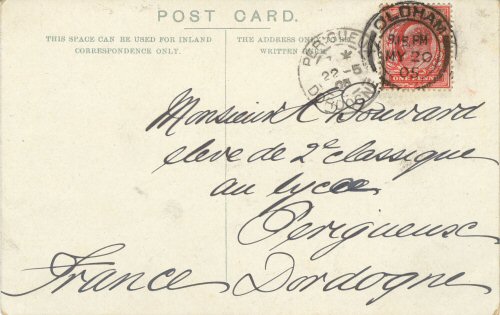 POST CARD.
THIS SPACE CAN BE USED FOR INLAND
CORRESPONDENCE ONLY.
THE ADDRESS ONL
WRITTEN
OLDHAM
9.15 PM
MY 20
05
ONE PENNY
PERIGUEUX
22 - 5
05
DORDOGNE
Monsieur A Bouvard
eleve de 2e classique
au lycée
Perigueux
France Dordogne